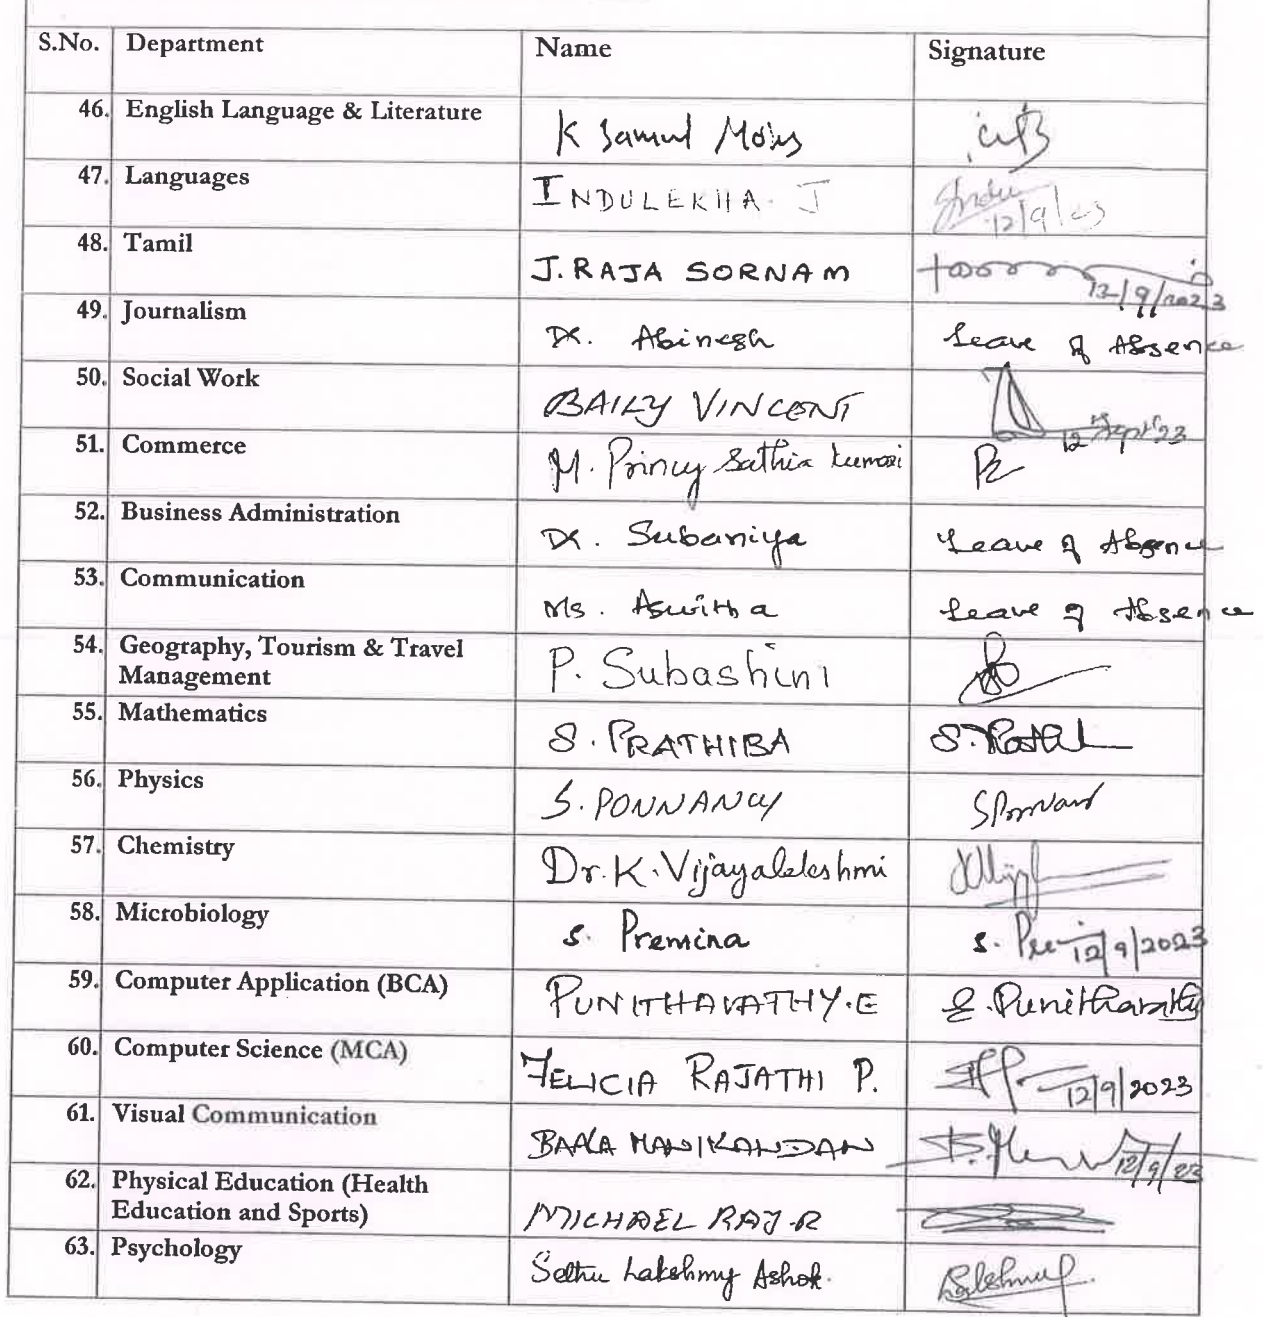 S.No. Department Name Signature
46. English Language & Literature K Samul
47. Languages INDULEKHA. J Indu
12/9/23
48. Tamil J. RAJA SORNAM
12/9/2023
49. Journalism Dr. Abinesh Leave of Absence
50. Social Work BAILY VINCENT
12 Sept'23
51. Commerce M. Princy Sathia Kumari
52. Business Administration Dr. Subaniya Leave of Absence
53. Communication Ms. Aswitha Leave of Absence
54. Geography, Tourism & Travel
Management P. Subashini
55. Mathematics S. PRATHIBA
56. Physics S. PONNANCY
57. Chemistry Dr. K. Vijayalekshmi
58. Microbiology S. Premina S.
12/9/2023
59. Computer Application (BCA) PUNITHAVATHY. E E. Punithavathy
60. Computer Science (MCA) FELICIA RAJATHI P.
12/9/2023
61. Visual Communication BAALA MANIKANDAN
12/9/23
62. Physical Education (Health
Education and Sports) MICHAEL RAJ. R
63. Psychology Sethu Lakshmy Ashok.